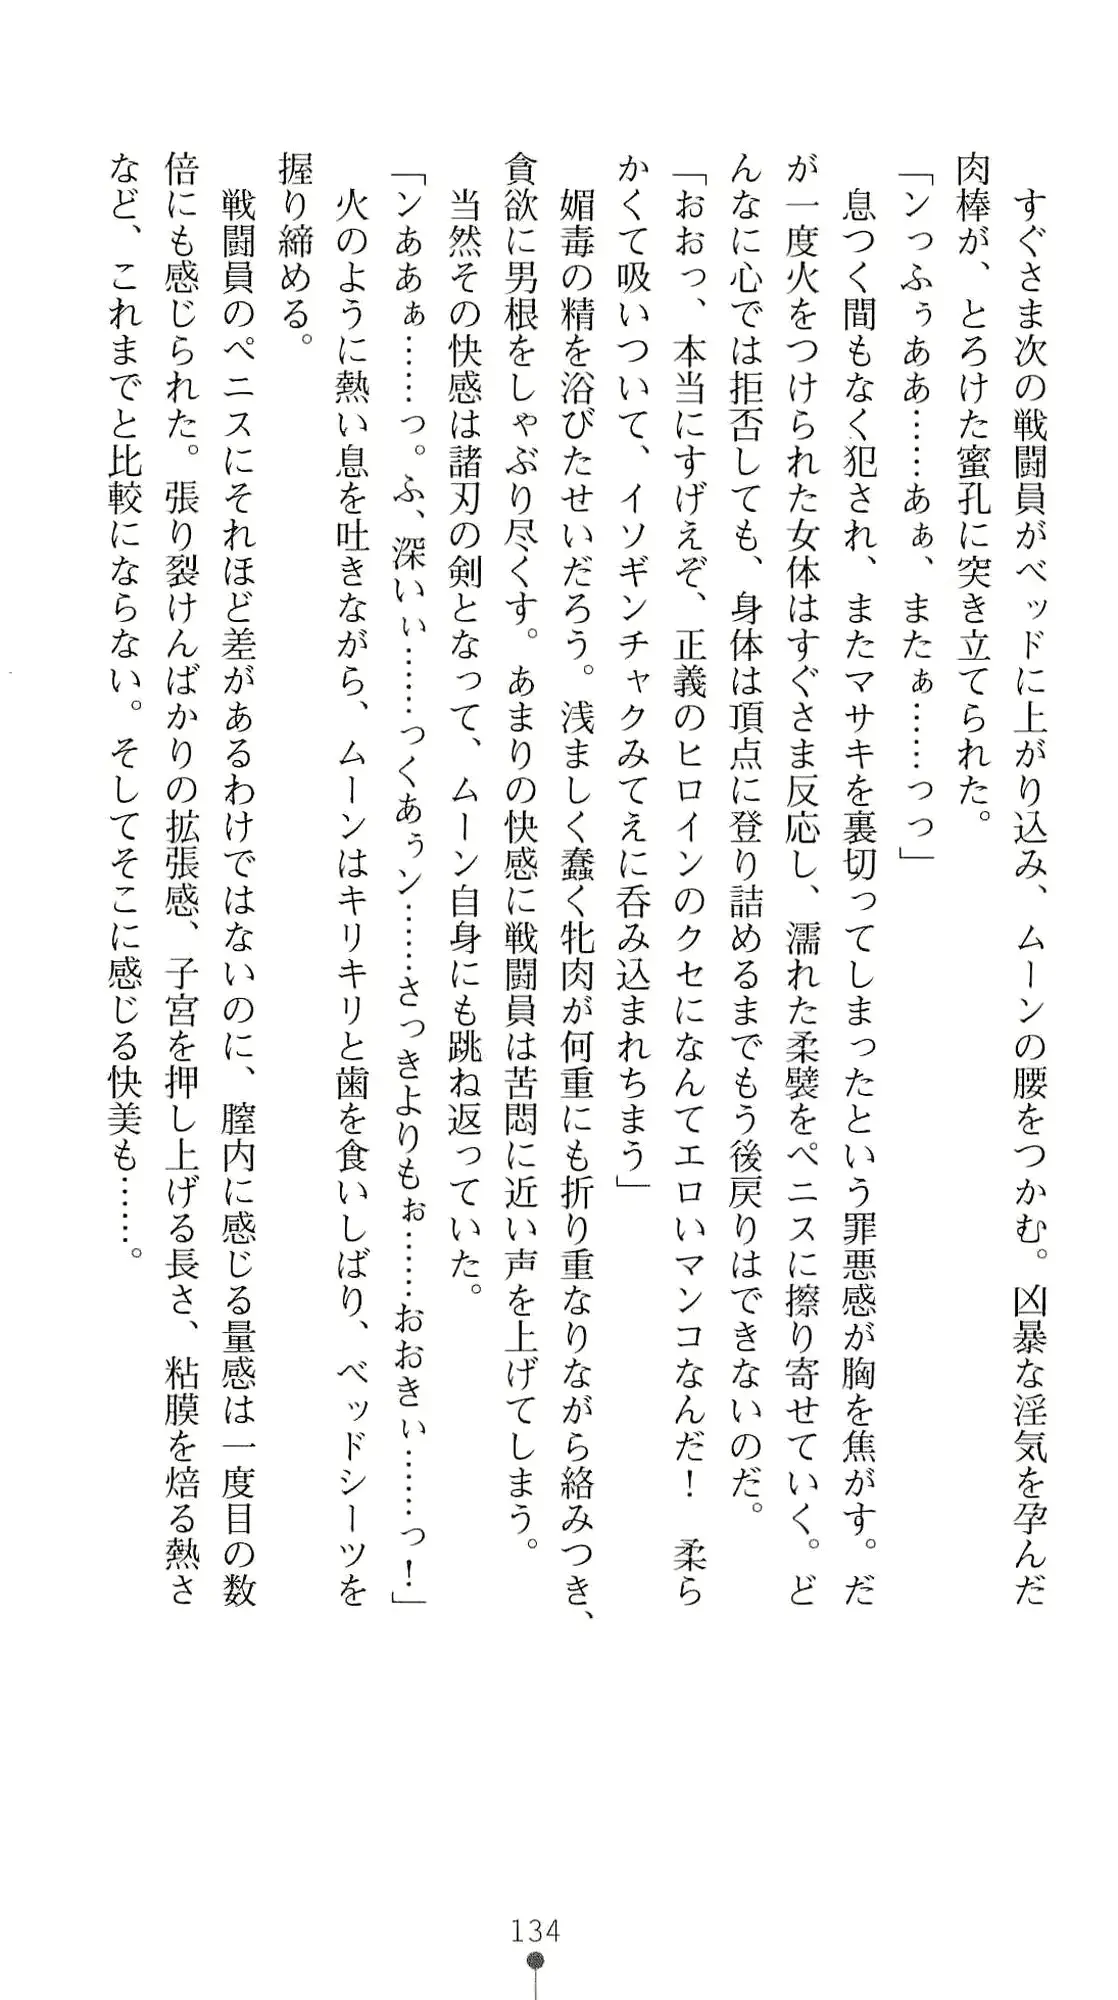 すぐさま次の戦闘員がベッドに上がり込み、ムーンの腰をつかむ。凶暴な淫気を孕んだ
肉棒が、とろけた蜜孔に突き立てられた。
「ンっふぅああ……あぁ、またぁ……っっ」
息つく間もなく犯され、またマサキを裏切ってしまったという罪悪感が胸を焦がす。だ
が一度火をつけられた女体はすぐさま反応し、濡れた柔襞をペニスに擦り寄せていく。ど
んなに心では拒否しても、身体は頂点に登り詰めるまでもう後戻りはできないのだ。
「おおっ、本当にすげえぞ、正義のヒロインのクセになんてエロいマンコなんだ！　柔ら
かくて吸いついて、イソギンチャクみてえに呑み込まれちまう」
媚毒の精を浴びたせいだろう。浅ましく蠢く牝肉が何重にも折り重なりながら絡みつき、
貪欲に男根をしゃぶり尽くす。あまりの快感に戦闘員は苦悶に近い声を上げてしまう。
当然その快感は諸刃の剣となって、ムーン自身にも跳ね返っていた。
「ンああぁ……っ。ふ、深いぃ……っくあぅン……さっきよりもぉ……おおきぃ……っ！」
火のように熱い息を吐きながら、ムーンはキリキリと歯を食いしばり、ベッドシーツを
握り締める。
戦闘員のペニスにそれほど差があるわけではないのに、膣内に感じる量感は一度目の数
倍にも感じられた。張り裂けんばかりの拡張感、子宮を押し上げる長さ、粘膜を焙る熱さ
など、これまでと比較にならない。そしてそこに感じる快美も……。
134